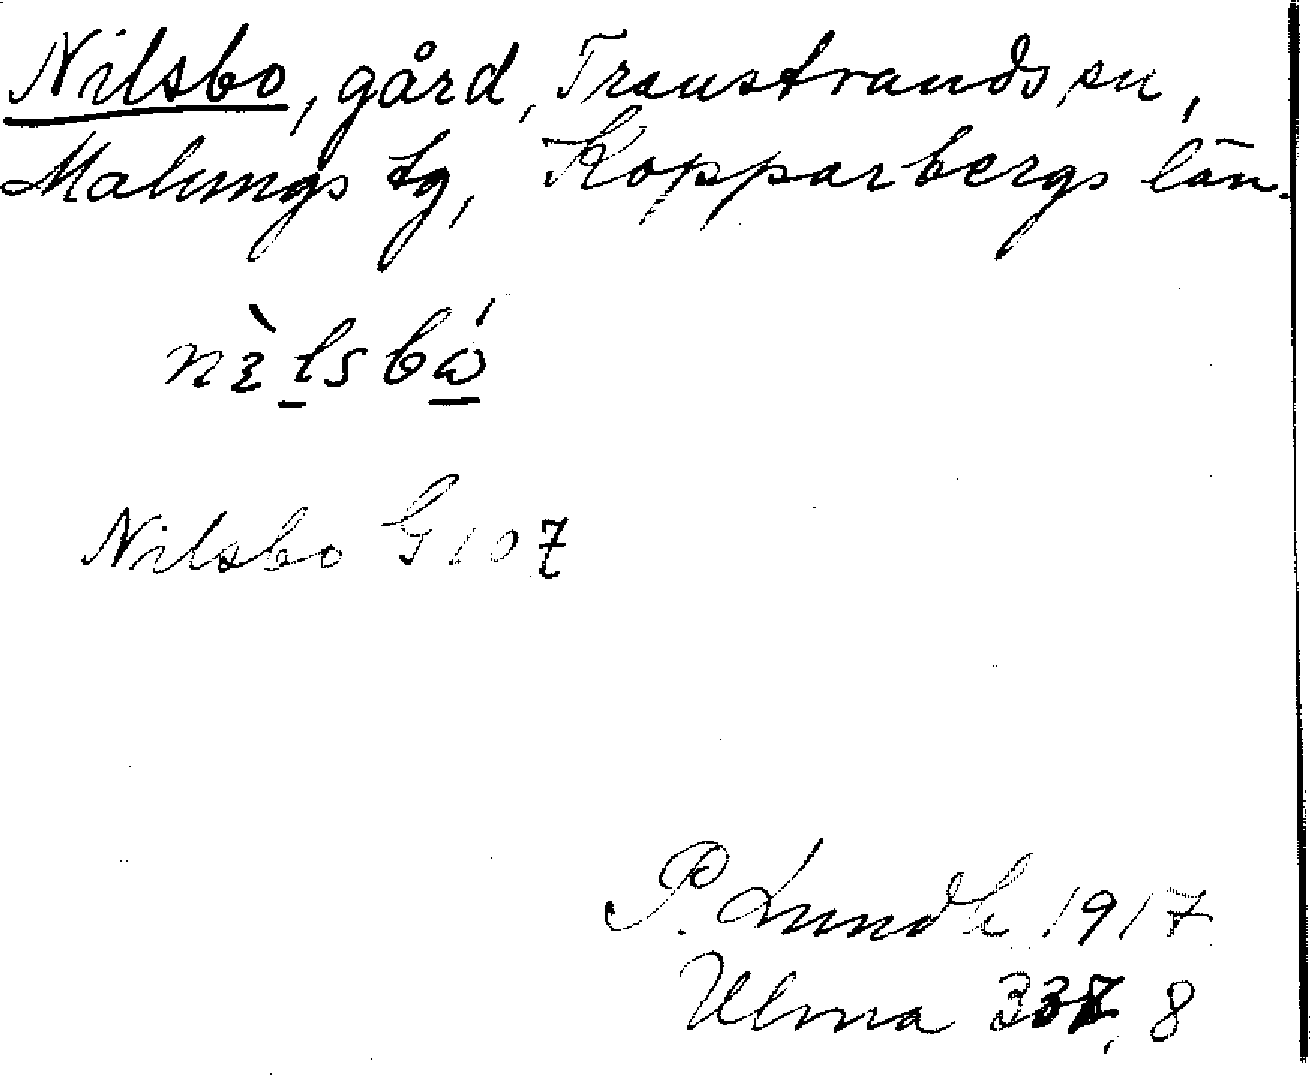 Nilsbo, gård, Transtrands sn,
Malungs tg, Kopparbergs län.
Nilsbo G 107
P. Lundh 1917
Ulma 337, 8